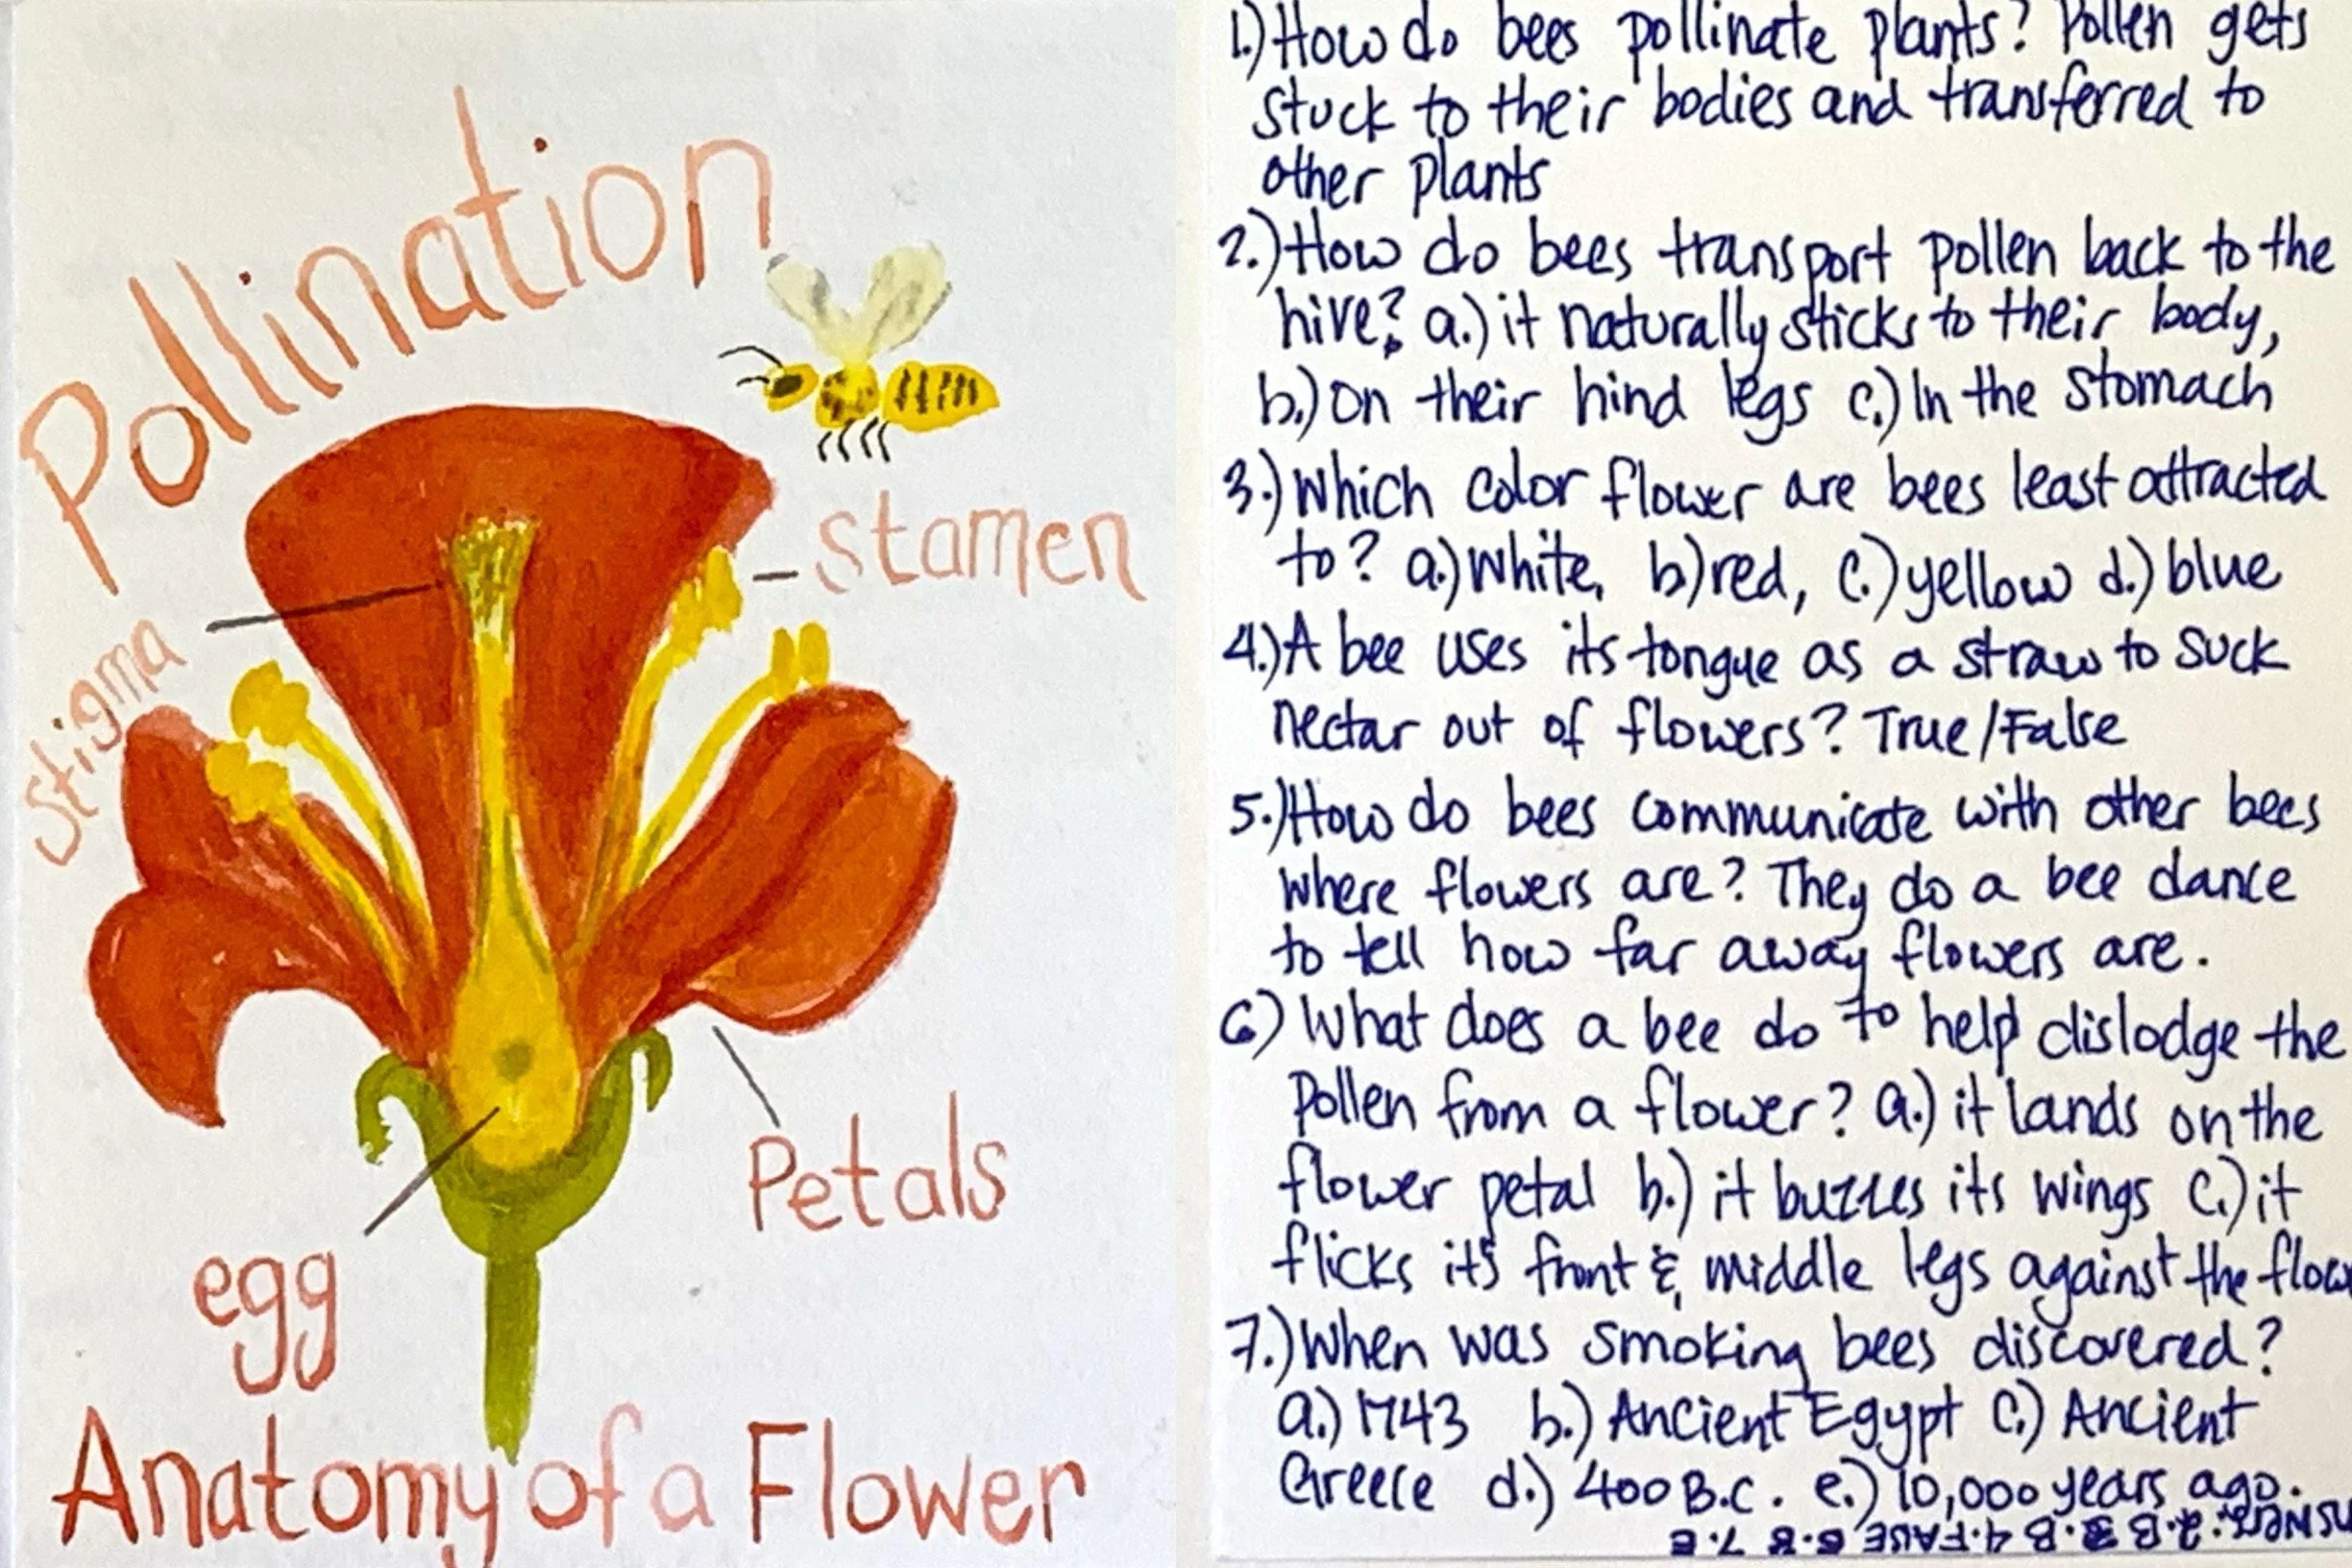 Pollination
stamen
stigma
Petals
egg
Anatomy of a Flower
1.) How do bees pollinate plants? Pollen gets
stuck to their bodies and transferred to
other plants
2.) How do bees transport pollen back to the
hive? a.) it naturally sticks to their body,
b.) on their hind legs c.) In the stomach
3.) Which color flower are bees least attracted
to? a.) White, b) red, c.) yellow d.) blue
4.) A bee uses its tongue as a straw to suck
nectar out of flowers? True/False
5.) How do bees communicate with other bees
where flowers are? They do a bee dance
to tell how far away flowers are.
6) What does a bee do to help dislodge the
pollen from a flower? a.) it lands on the
flower petal b.) it buzzes its wings c.) it
flicks it's front & middle legs against the flow
7.) When was smoking bees discovered?
a.) 1743 b.) Ancient Egypt c.) Ancient
Greece d.) 400 B.C. e.) 10,000 years ago.
Answers: 2. B 3. B 4. FALSE 6. B 7. E